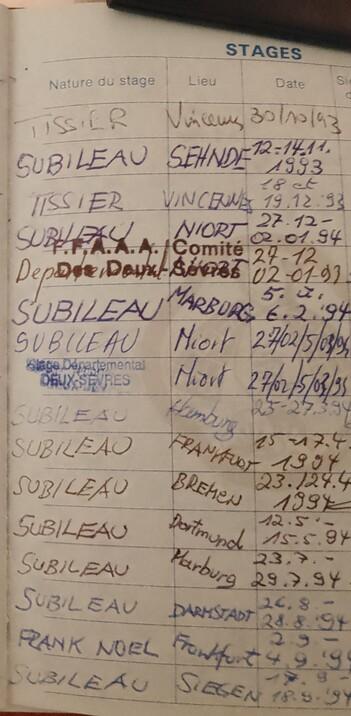 STAGES
Nature du stage Lieu Date
TISSIER Vincennes 30/10/93
SUBILEAU SEHNDE 12-14.11.
1993
TISSIER VINCENNES 18 et
19.12.93
SUBILEAU NIORT 27.12-
02.01.94
F.F.A.A.A. Comité
Des Deux-Sèvres
27-12
02-01-93
SUBILEAU MARBURG 5. u.
6.2.94
SUBILEAU Niort 27/02/5/03/94
Stage Départemental
DEUX-SEVRES
Niort 27/02/5/03/94
SUBILEAU Hamburg 25-27.3.94
SUBILEAU FRANKFURT 15-17.4.
1994
SUBILEAU BREMEN 23.+24.4
1994
SUBILEAU Dortmund 12.5.-
15.5.94
SUBILEAU Marburg 23.7.-
29.7.94
SUBILEAU DARMSTADT 26.8.-
28.8.94
FRANK NOEL Frankfurt 2.9-
4.9.94
SUBILEAU SIEGEN 17.9-
18.9.94